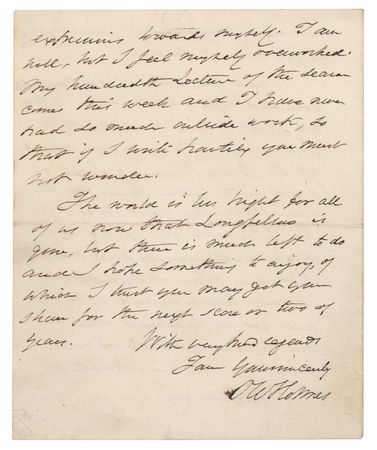 expressions towards myself. I am
well, but I feel myself overworked.
My hundredth Lecture of the season
comes this week and I have never
had so much outside work, so
that if I write hastily you must
not wonder.
The world is less bright for all
of us now that Longfellow is
gone, but there is much left to do
and I hope something to enjoy, of
which I trust you may get your
share for the next score or two of
years.
With very kind regards
I am Yours sincerely
O W Holmes